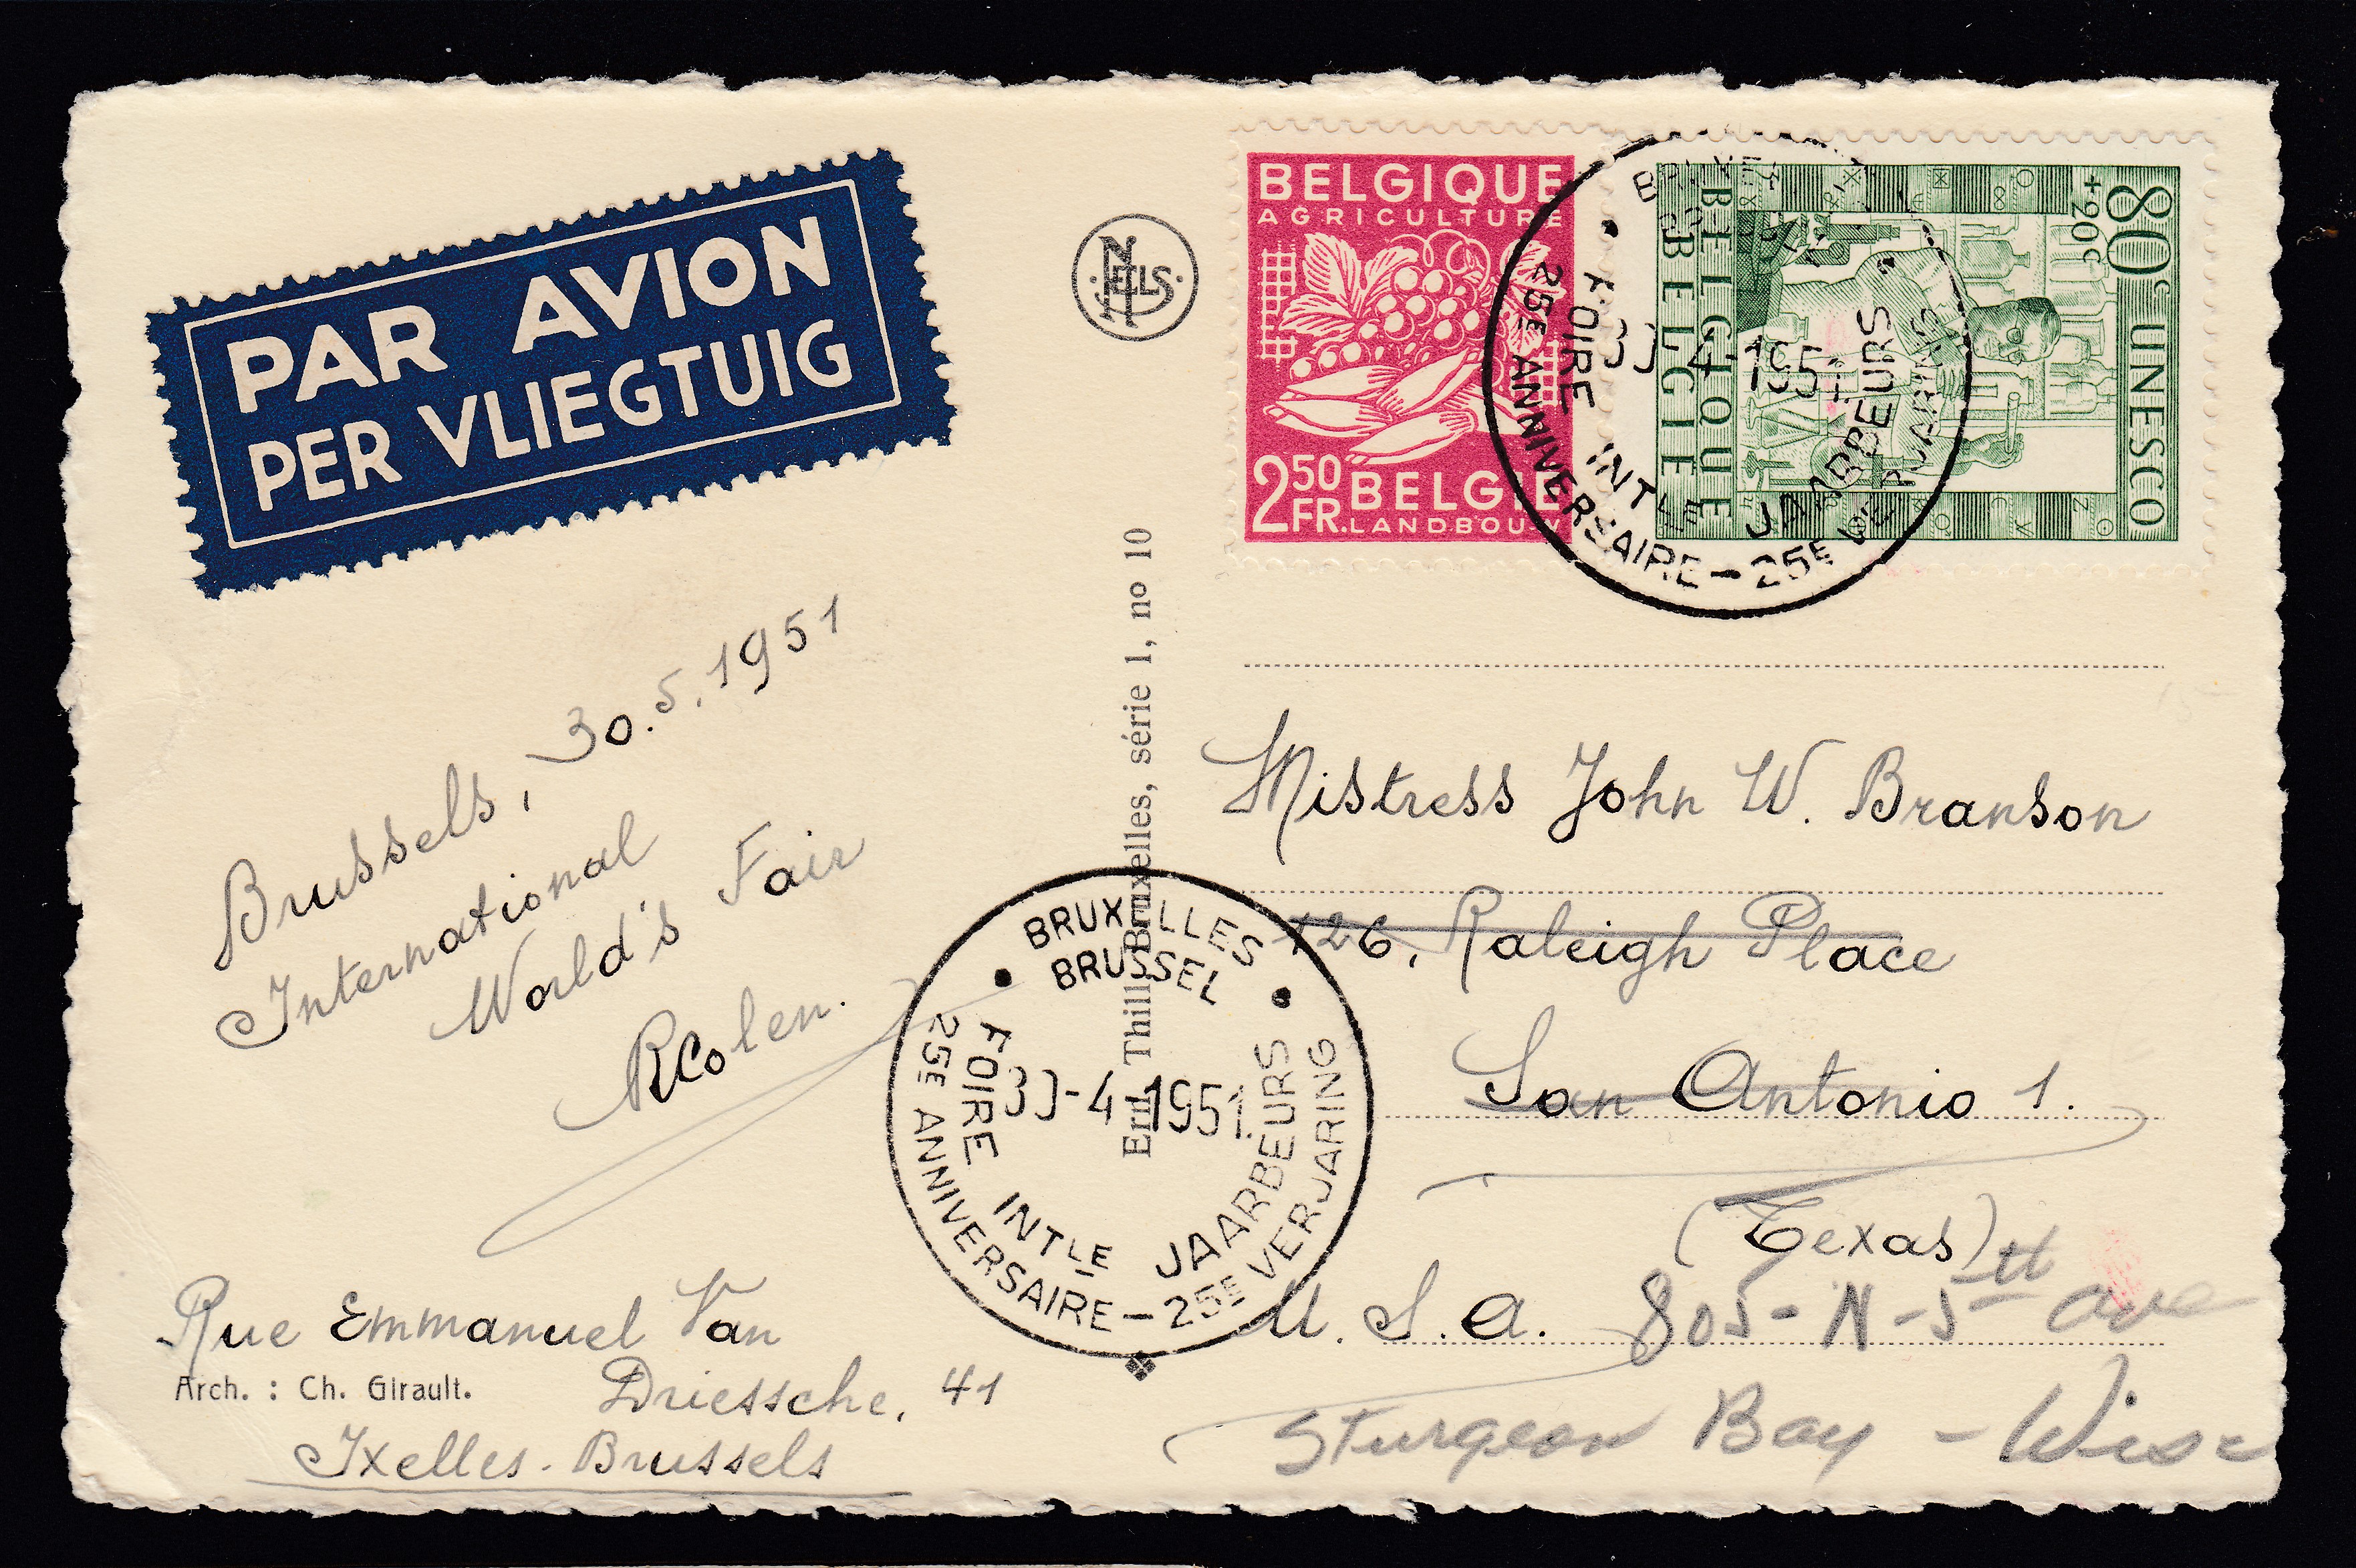 PAR AVION
PER VLIEGTUIG
NELLS
BELGIQUE
AGRICULTURE
2 50 FR.
BELGIE
LANDBOUW
80c UNESCO
+20c
BELGIQUE
BELGIE
FOIRE INTLE JAARBEURS
25E ANNIVERSAIRE – 25E VERJARING
Brussels, 30.5.1951
International
World's Fair
Rue Emmanuel Van
Driessche, 41
Ixelles-Brussels
Arch. : Ch. Girault.
Ern. Thill, Bruxelles, série 1, no 10
BRUXELLES
BRUSSEL
30-4-1951
FOIRE INTLE JAARBEURS
25E ANNIVERSAIRE – 25E VERJARING
Mistress John W. Branson
126, Raleigh Place
San Antonio 1.
(Texas)
U.S.A.
805-N-5th ave
Sturgeon Bay - Wisc